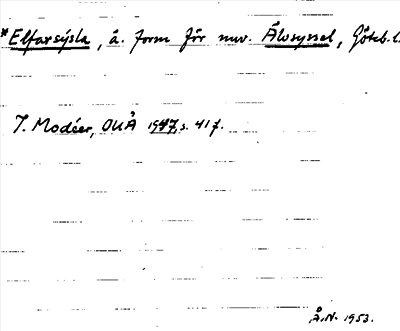 *Elfarsýsla, ä. form för nuv. Älvsyssel, Göteb.l.
I. Modéer, OUÅ 1947, s. 417.
Å.N. 1953.